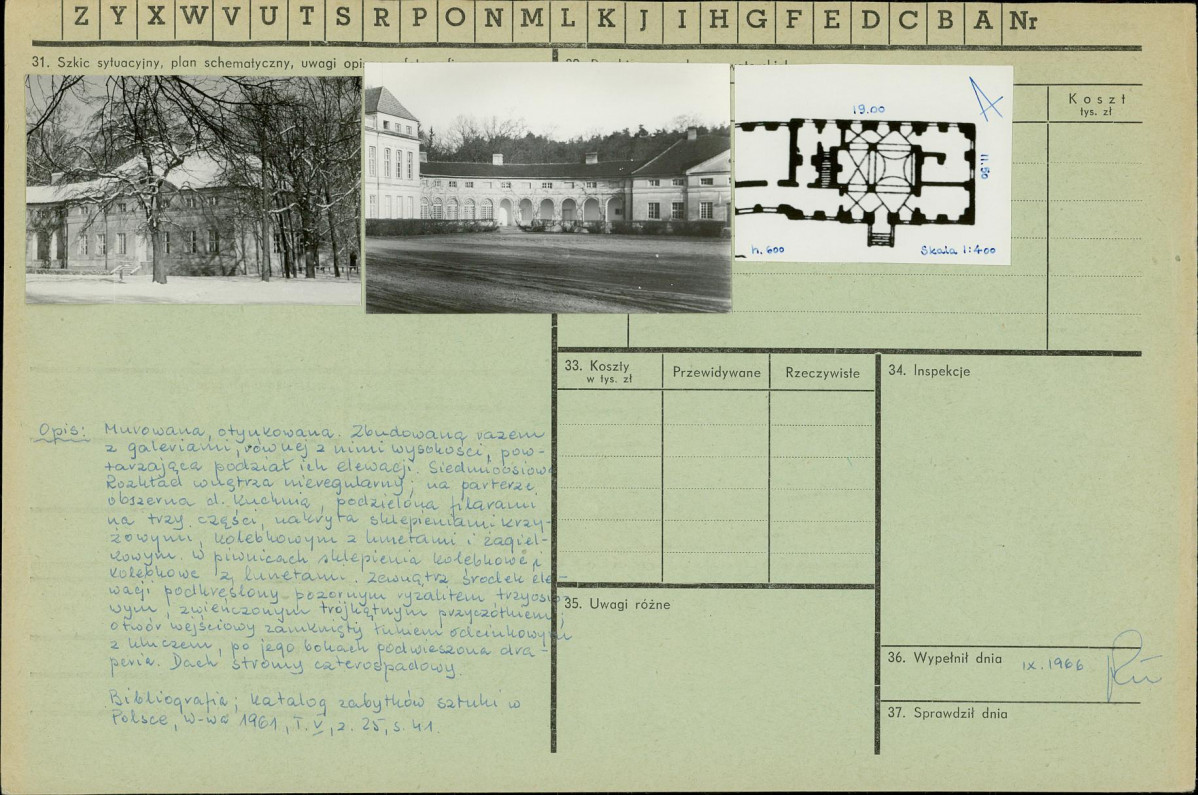 Z Y X W V U T S R P O N M L K J I H G F E D C B A Nr
31. Szkic sytuacyjny, plan schematyczny, uwagi opi
Koszt
tys. zł
19.00
11.50
h. 600
Skala 1:400
33. Koszty
w tys. zł
Przewidywane
Rzeczywiste
34. Inspekcje
Opis: Murowana, otynkowana. Zbudowana razem
z galeriami, równej z nimi wysokości, pow-
tarzająca podział ich elewacji. Siedmioosiowa
Rozkład wnętrza nieregularny; na parterze
obszerna d. kuchnia, podzielona filarami
na trzy części, nakryta sklepieniami krzy-
żowymi, kolebkowym z lunetami i żagiel-
kowym. W piwnicach sklepienia kolebkowe i
kolebkowe z lunetami. Zewnątrz środek ele-
wacji podkreślony pozornym ryzalitem trzyosio
wym, zwieńczonym trójkątnym przyczółkiem;
otwór wejściowy zamknięty łukiem odcinkowym
z kluczem, po jego bokach podwieszona dra-
peria. Dach stromy czterospadowy.
Bibliografia; Katalog zabytków sztuki w
Polsce, W-wa 1961, T. V, z. 25, s. 41.
35. Uwagi różne
36. Wypełnił dnia
IX. 1966
37. Sprawdził dnia